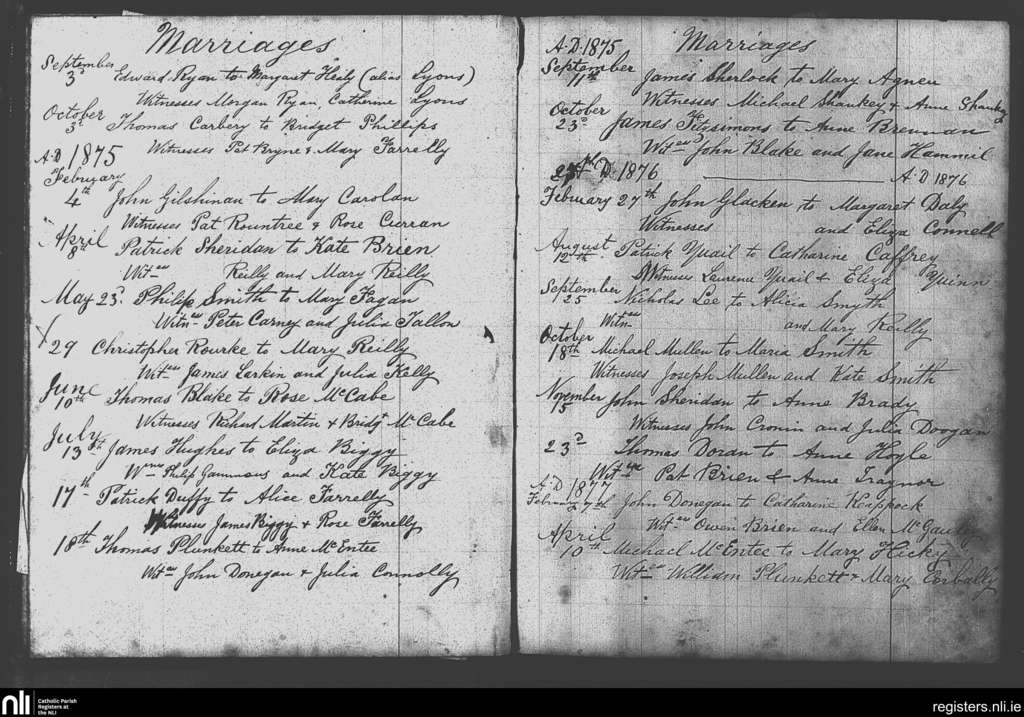 Marriages
September
3d Edward Ryan to Margaret Healy (alias Lyons)
Witnesses Morgan Ryan, Catherine Lyons
October
3d Thomas Carbery to Bridget Phillips
Witnesses Pat Bryne & Mary Farrelly
A.D 1875
February
4th John Gilshinan to Mary Carolan
Witnesses Pat Rountree & Rose Curran
April
8th Patrick Sheridan to Kate Brien
Wit-es Reilly and Mary Reilly
May 23d. Philip Smith to Mary Fagan
Witn-es Peter Carney and Julia Tallon
X
29 Christopher Rourke to Mary Reilly
Wit-es James Larkin and Julia Kelly
June
10th Thomas Blake to Rose McCabe
Witnesses Richard Martin & Bridgt McCabe
July
13th James Hughes to Eliza Biggy
Philip and Kate Biggy
17th Patrick Duffy to Alice Farrelly
Witnesses James Biggy & Rose Farrelly
18th Thomas Plunkett to Anne McEntee
Wit-es John Donegan & Julia Connolly
A.D. 1875 Marriages
September
11th James Sherlock to Mary Agnew
Witnesses Michael Shankey & Anne Shankey
October
23d James Fitzsimons to Anne Brennan
Wit-es John Blake and Jane Hammil
A.D. 1876 A.D 1876
February 27th John Glacken to Margaret Daly
Witnesses and Eliza Connell
August
12th Patrick Quail to Catharine Caffrey
Witneses Laurence Quail & Eliza Quinn
September
25 Nicholas Lee to Alicia Smyth
Witn-es and Mary Reilly
October
18th Michael Mullen to Maria Smith
Witnesses Joseph Mullen and Kate Smith
November
15 John Sheridan to Anne Brady
Witnesses John Cronin and Julia Doogan
23d Thomas Doran to Anne Hoyle
Wit-es Pat Brien & Anne Traynor
A.D 1877
February 7th John Donegan to Catharine Keappock
Wit-es Owen Brien and Ellen
April
10th Michael McEntee to Mary Hickey
Wit-es William Plunkett & Mary Corbally
nli
Catholic Parish
Registers at
the NLI
registers.nli.ie